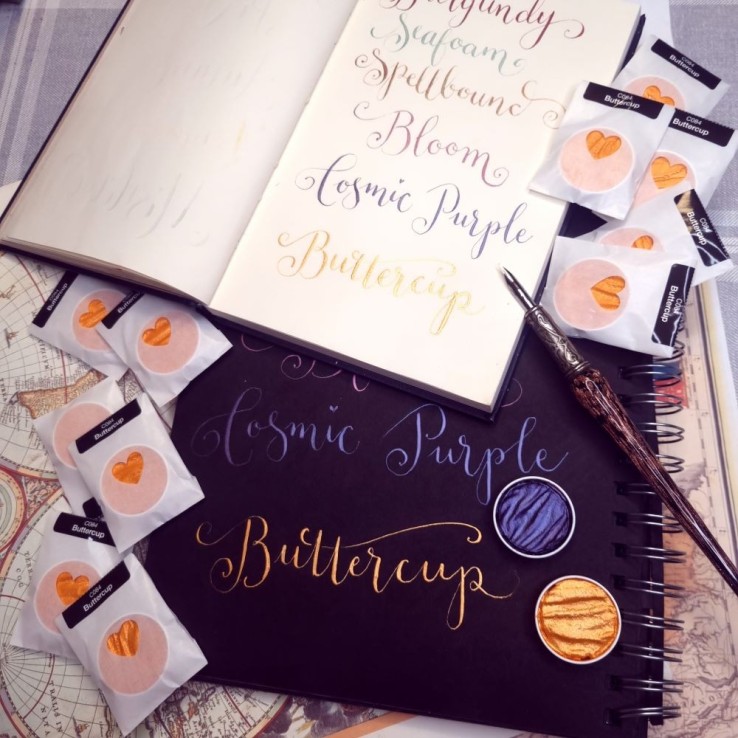 Burgundy
Seafoam
Spellbound
Bloom
Cosmic Purple
Buttercup
Cosmic Purple
Buttercup
C084
Buttercup
C084
Buttercup
C084
Buttercup
C084
Buttercup
C084
Buttercup
C084
Buttercup
C084
Buttercup
C084
Buttercup
C084
Buttercup
C084
Buttercup